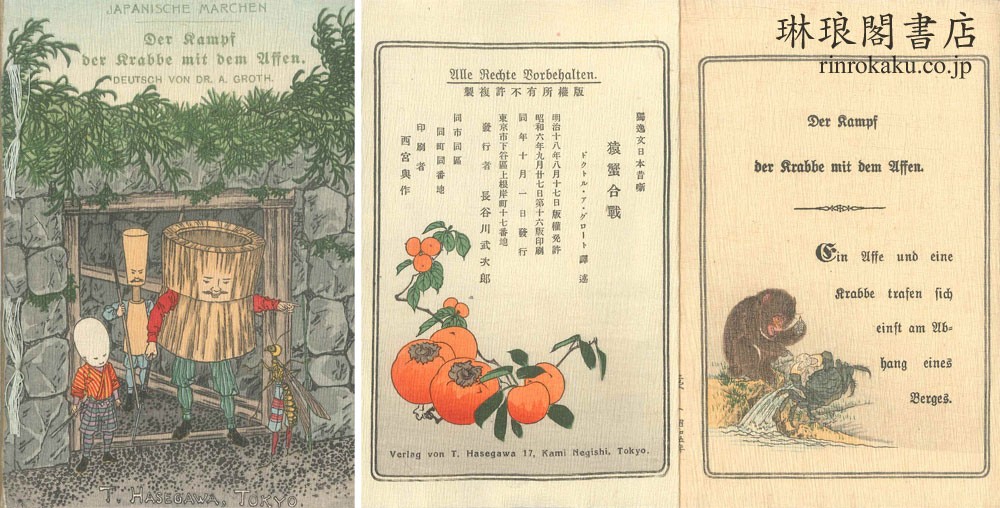 JAPANISCHE MÄRCHEN
Der Kampf
der Krabbe mit dem Affen.
DEUTSCH VON DR. A. GROTH.
T. HASEGAWA, TOKYO.
Alle Rechte Vorbehalten.
製複許不有所權版
獨逸文日本昔噺
猿蟹合戰
ドクトル・ア・グロート譯述
明治十八年八月十七日版權免許
昭和六年九月廿七日第十六版印刷
同年十月一日發行
東京市下谷區上根岸町十七番地
發行者 長谷川武次郎
同市同區
同町同番地
印刷者
西宮與作
Verlag von T. Hasegawa 17, Kami Negishi, Tokyo.
琳琅閣書店
rinrokaku.co.jp
Der Kampf
der Krabbe mit dem Affen.
Ein Affe und eine
Krabbe trafen sich
einst am Ab-
hang eines
Berges.